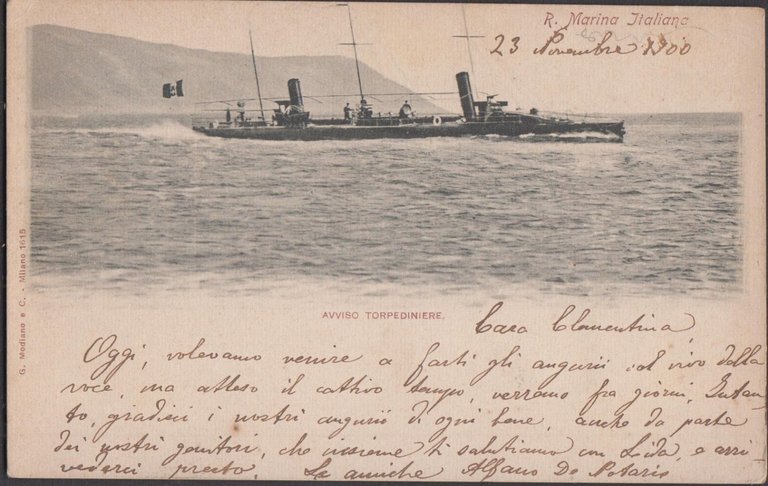 R. Marina Italiana
23 Novembre 1900
G. Modiano e C. - Milano 1615
AVVISO TORPEDINIERE.
Cara Clementina,
Oggi, volevamo venire a farti gli augurii col vivo della
voce, ma atteso il cattivo tempo, verremo fra giorni, Intan-
to, gradisci i nostri augurii di ogni bene, anche da parte
dei nostri genitori, che insieme ti salutiamo con Lida, e arri
vederci presto. Le amiche Alfano De